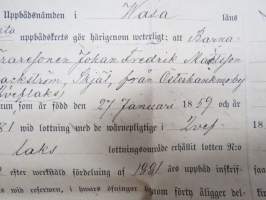 Uppbådsnämden i Wasa läns
uppbådskrets gör härigenom weterligt: att Barna-
Johan Fredrik Mattsson
från Österhankmo by
Qveflaks)
som är född den 27 Januari 18 59 och år
81 wid lottning med de wärnepligtige i Qvef-
laks lottningsområde erhållit lotten N:o
efter werkställd fördelning af 1881 års uppbåd inskrif-
wid reserwen, i hwars öfningar honom förty åligger del-